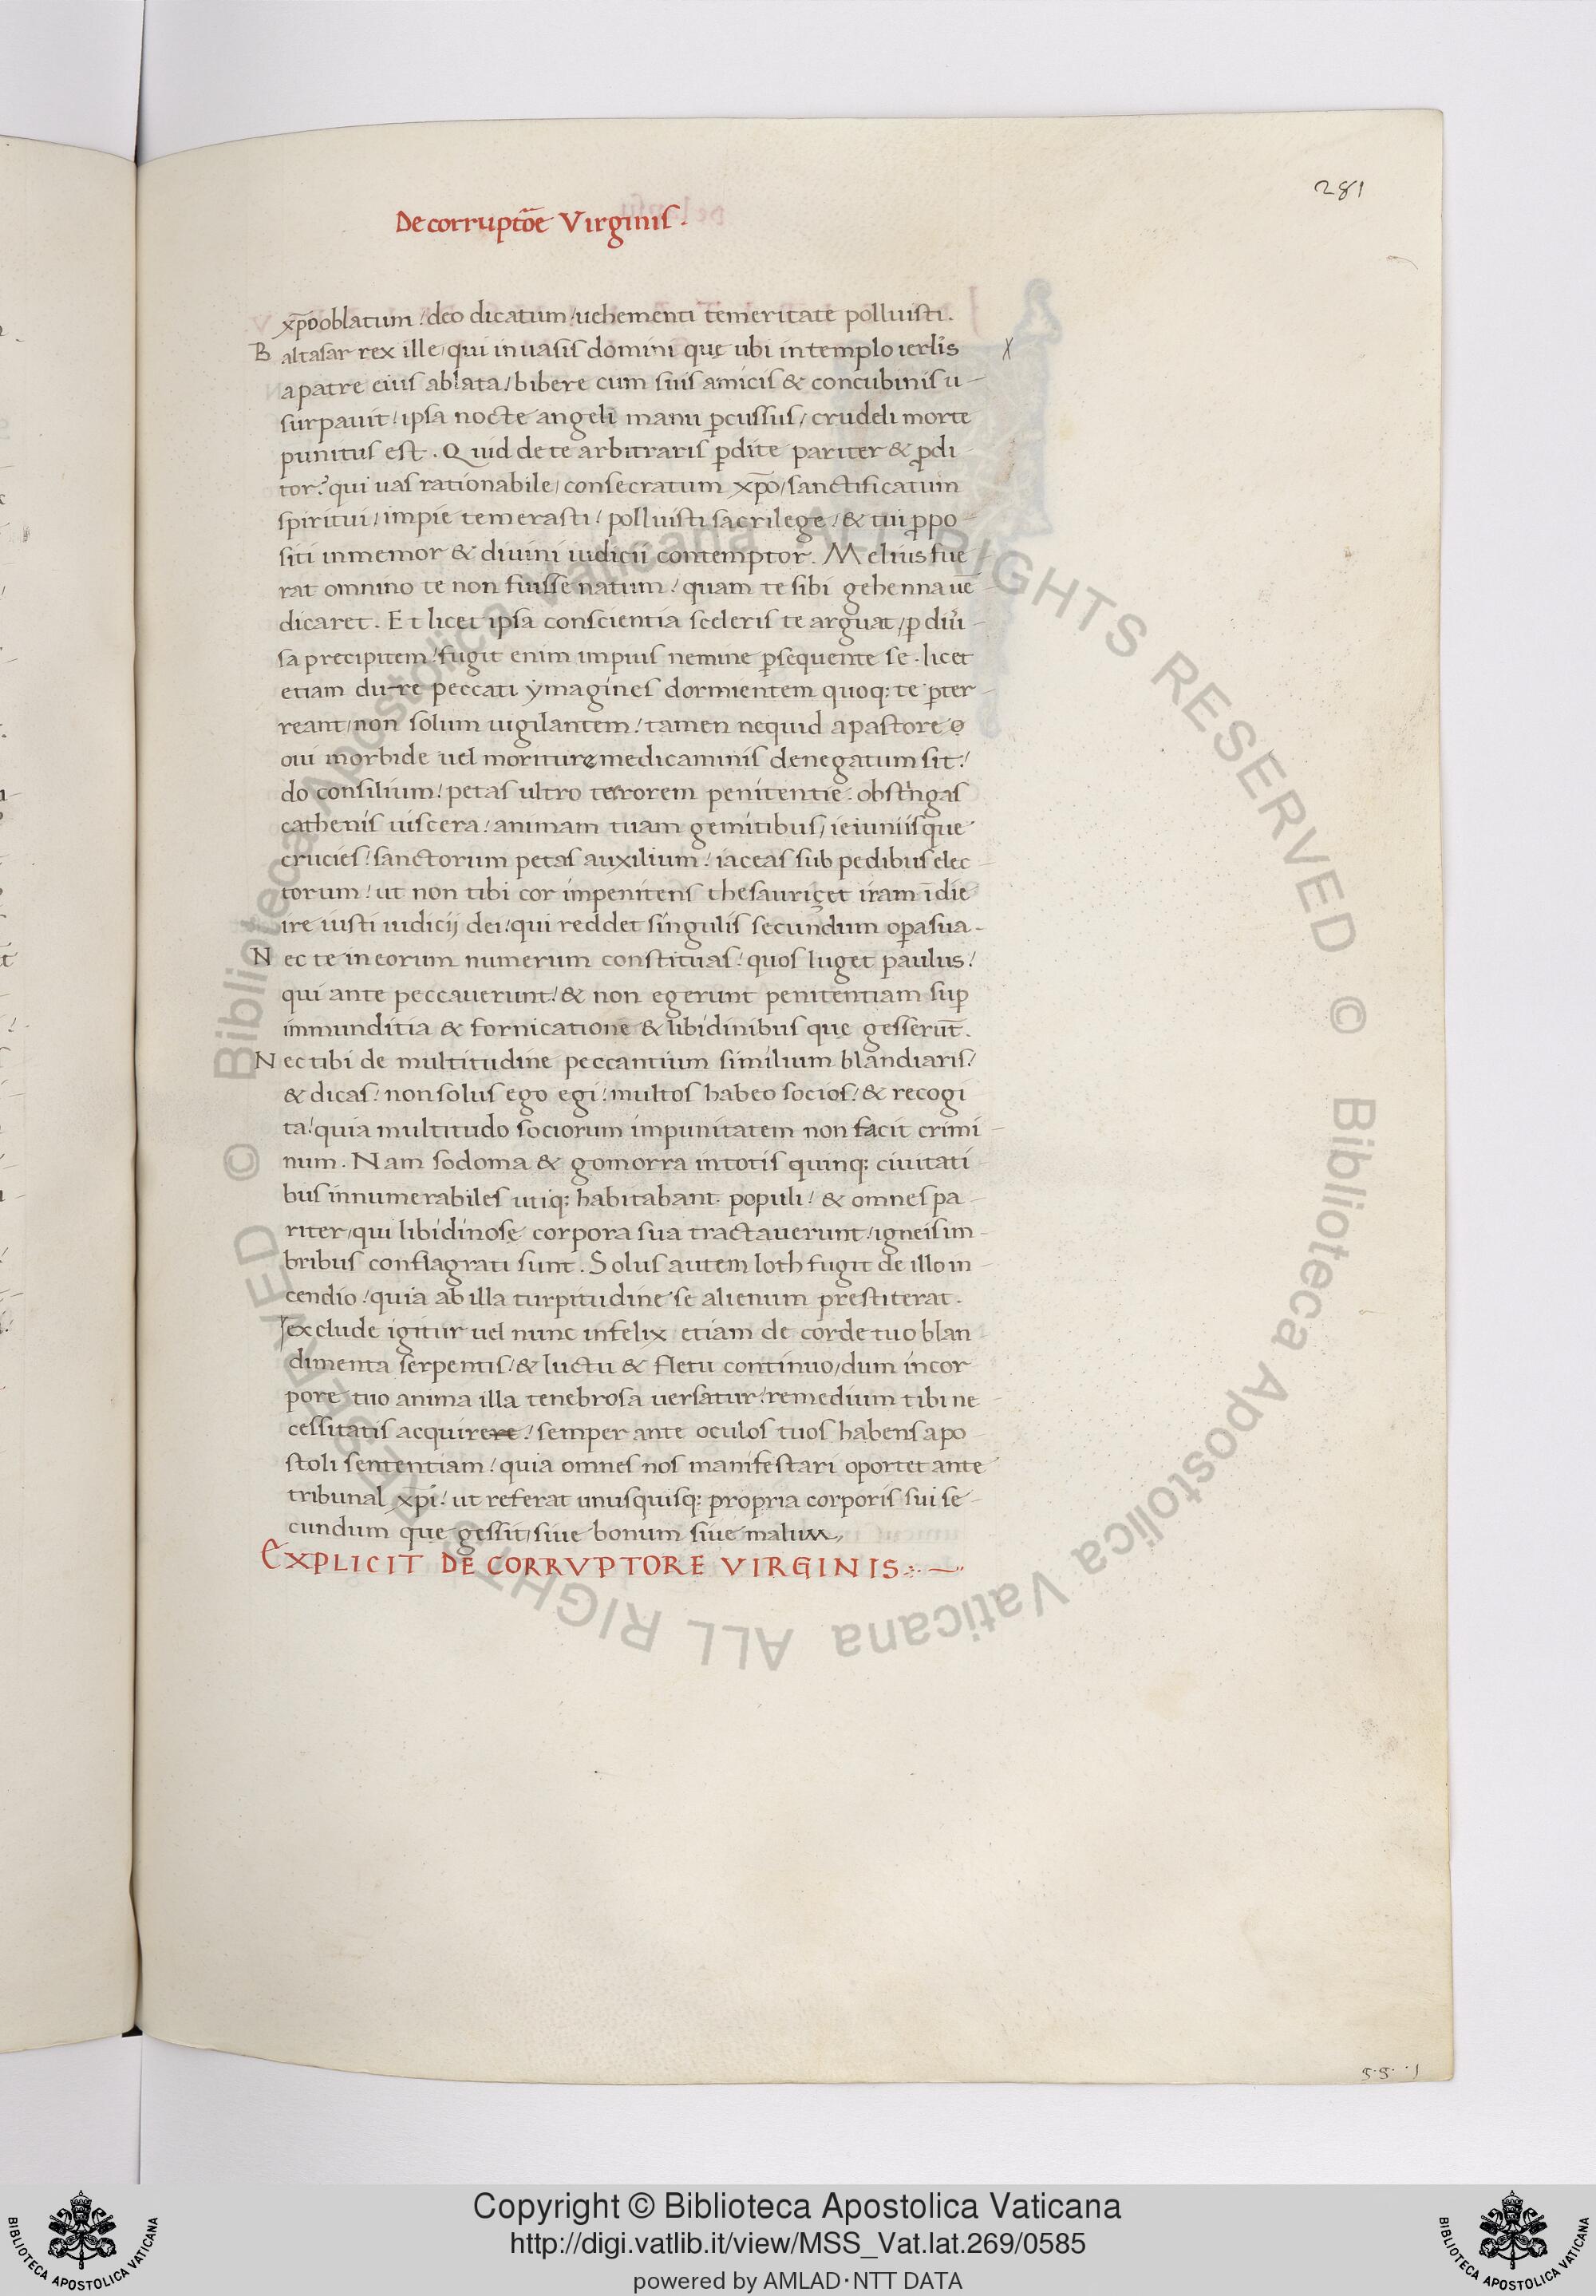 281
De corruptōe Virginis.
xp̄o oblatum! deo dicatum! uehementi temeritate polluisti.
Baltasar rex ille, qui in uasis domini quę ubi in templo ierlīs
a patre eius ablata! bibere cum suis amicis & concubinis u-
surpauit! ipsa nocte angeli manu ꝑcussus, crudeli morte
punitus est. Quid de te arbitraris ꝑdite pariter & ꝓdi-
tor? qui uas rationabile, consecratum xp̄o, sanctificatum
spiritui, impie temerasti! polluisti sacrilege, & tui ꝓpo-
siti inmemor & diuini iudicii contemptor. Melius fue-
rat omnino te non fuisse natum! quam te sibi gehenna uē-
dicaret. Et licet ipsa conscientia sceleris te arguat, ꝑ diũi-
sa precipitem! fugit enim impius nemine ꝑsequente se. licet
etiam du-re peccati ẏmagines dormientem quoq: te ꝑter-
reant, non solum uigilantem! tamen nequid a pastore o
oui morbide uel moriturę medicaminis denegatum sit!
do consilium! petas ultro terrorem penitentie. obstingas
cathenis uiscera! animam tuam gemitibus, ieiuniisque
crucies! sanctorum petas auxilium! iaceas sub pedibus elec-
torum! ut non tibi cor impenitens thesauriçet iram ī die
ire iusti iudicij dei! qui reddet singulis secundum oꝑa sua-
Nec te in eorum numerum constituas! quos luget paulus!
qui ante peccauerunt! & non egerunt penitentiam suꝑ
immunditia & fornicatione & libidinibus quę gesserūt.
Nec tibi de multitudine peccantium similium blandiaris!
& dicas! non solus ego egi! multos habeo socios! & recogi
ta! quia multitudo sociorum impunitatem non facit crimi-
num. Nam sodoma & gomorra in totis quinq: ciuitati-
bus innumerabiles utiq: habitabant populi! & omnes pa-
riter, qui libidinosę corpora sua tractauerunt! igneis im-
bribus conflagrati sunt. Solus autem loth fugit de illo in-
cendio! quia ab illa turpitudine se alienum prestiterat.
exclude igitur uel nunc infelix etiam de corde tuo blan
dimenta serpentis! & luctu & fletu continuo, dum in cor-
pore tuo anima illa tenebrosa uersatur! remedium tibi ne
cessitatis acquirere! semper ante oculos tuos habens apo-
stoli sententiam! quia omnes nos manifestari oportet ante
tribunal xp̄i! ut referat unusquisq: propria corporis sui se-
cundum quę gessit, siue bonum siue malum,
EXPLICIT DE CORRVPTORE VIRGINIS
Copyright © Biblioteca Apostolica Vaticana
http://digi.vatlib.it/view/MSS_Vat.lat.269/0585
powered by AMLAD·NTT DATA
© Biblioteca Apostolica Vaticana ALL RIGHTS RESERVED © Biblioteca Apostolica Vaticana ALL RIGHTS RESERVED
BIBLIOTECA APOSTOLICA VATICANA
BIBLIOTECA APOSTOLICA VATICANA